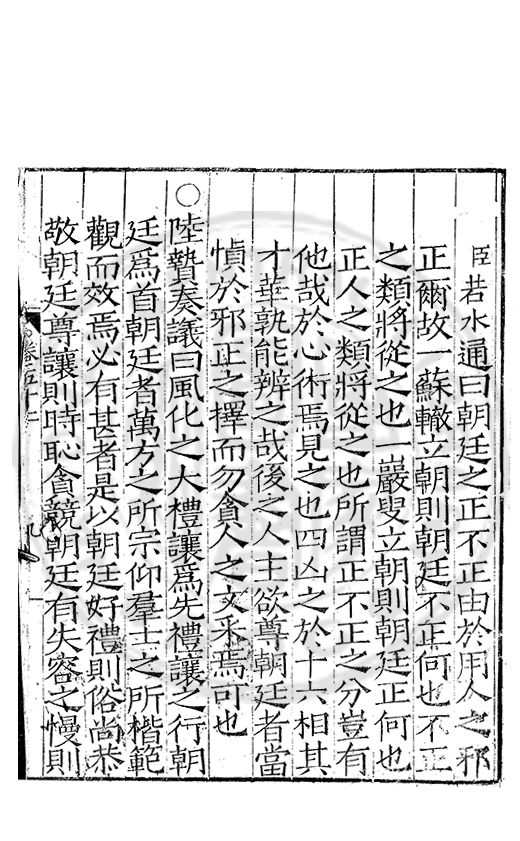 臣若水通曰朝廷之正不正由於用人之邪
正爾故一蘇轍立朝則朝廷不正何也不正
之類將從之也一嚴叟立朝則朝廷正何也
正人之類將從之也所謂正不正之分豈有
他哉於心術焉見之也四凶之於十六相其
才華孰能辨之哉後之人主欲尊朝廷者當
慎於邪正之擇而勿貪人之文釆焉可也
○陸贄奏議曰風化之大禮讓爲先禮讓之行朝
廷爲首朝廷者萬方之所宗仰羣士之所楷範
觀而效焉必有甚者是以朝廷好禮則俗尚恭
敬朝廷尊讓則時恥貪競朝廷有失容之慢則
卷五十二